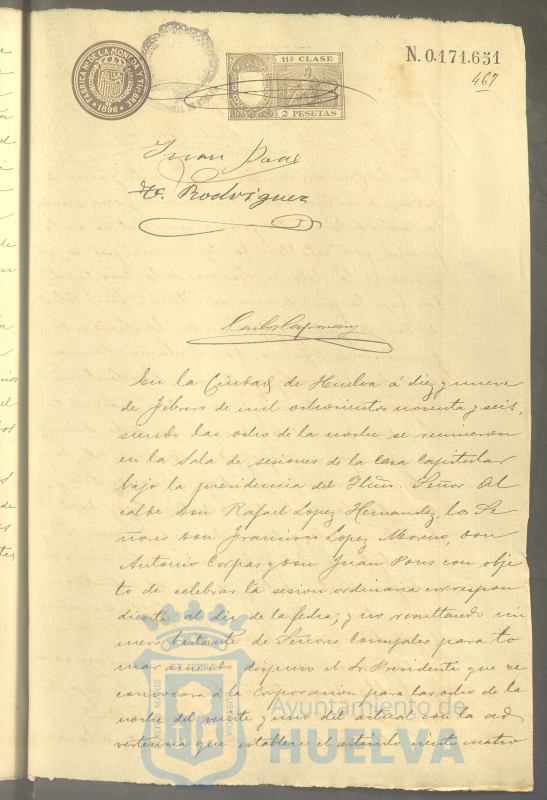 FABRICA Nl. DE LA MONEDA Y TIMBRE
1896
11ª CLASE
2 PESETAS
N. 0.171.651
467
Juan Pons
Rodriguez
Carlos Capmany
En la Ciudad de Huelva á diez y nueve
de Febrero de mil ochocientos noventa y seis,
siendo las ocho de la noche se reunieron
en la Sala de sesiones de la Casa Capitular
bajo la presidencia del Iltmo. Señor Al
calde Don Rafael Lopez Hernandez, los Se
ñores Don Francisco Lopez Moreno, Don
Antonio Corpas y Don Juan Pons con obje
to de celebrar la sesion ordinaria correspon
diente al dia de la fecha; y no resultando nú
mero bastante de Señores Concejales para to
mar acuerdo dispuso el Sr. Presidente que se
convocara á la Corporacion para las ocho de la
noche del veinte y uno del actual con la ad
vertencia que establece el artículo ciento cuatro
Ayuntamiento de
HUELVA